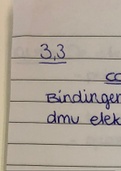 3,3
Bindingen
dmu elek